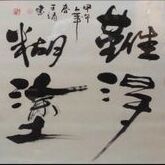 難得
糊塗
甲午年